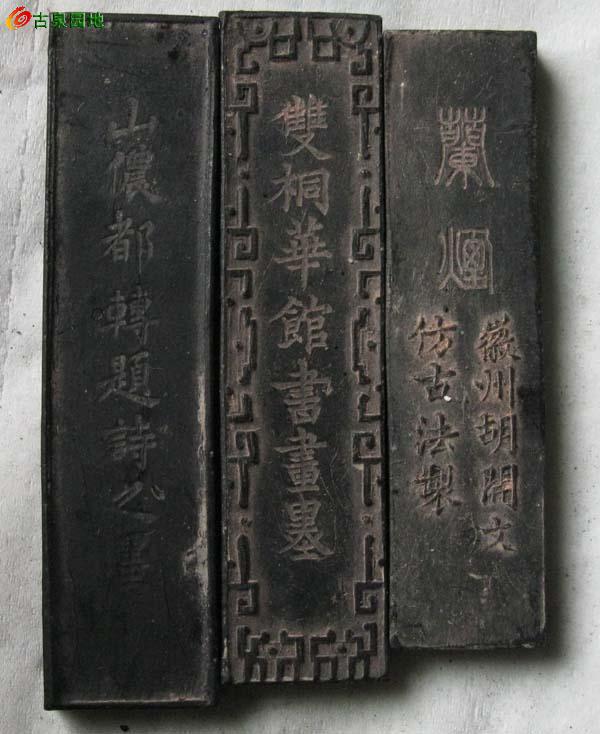 古泉园地
蘭煙
徽州胡開文
仿古法製
雙桐華館書畫墨
山儂都轉題詩之墨